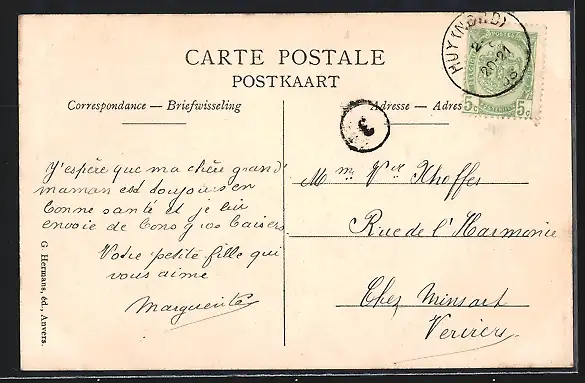 CARTE POSTALE
POSTKAART
Correspondance — Briefwisseling
Adresse — Adres
HUY (NORD)
20-21
5c 5c
3
J'espère que ma chère grand'
maman est toujours en
bonne santé et je lui
envoie de bons gros baisers
Votre petite fille qui
vous aime
Marguerite
Mme Vve Xhoffer
Rue de l'Harmonie
Chez Minsart
Verviers
G. Hermans, éd., Anvers.